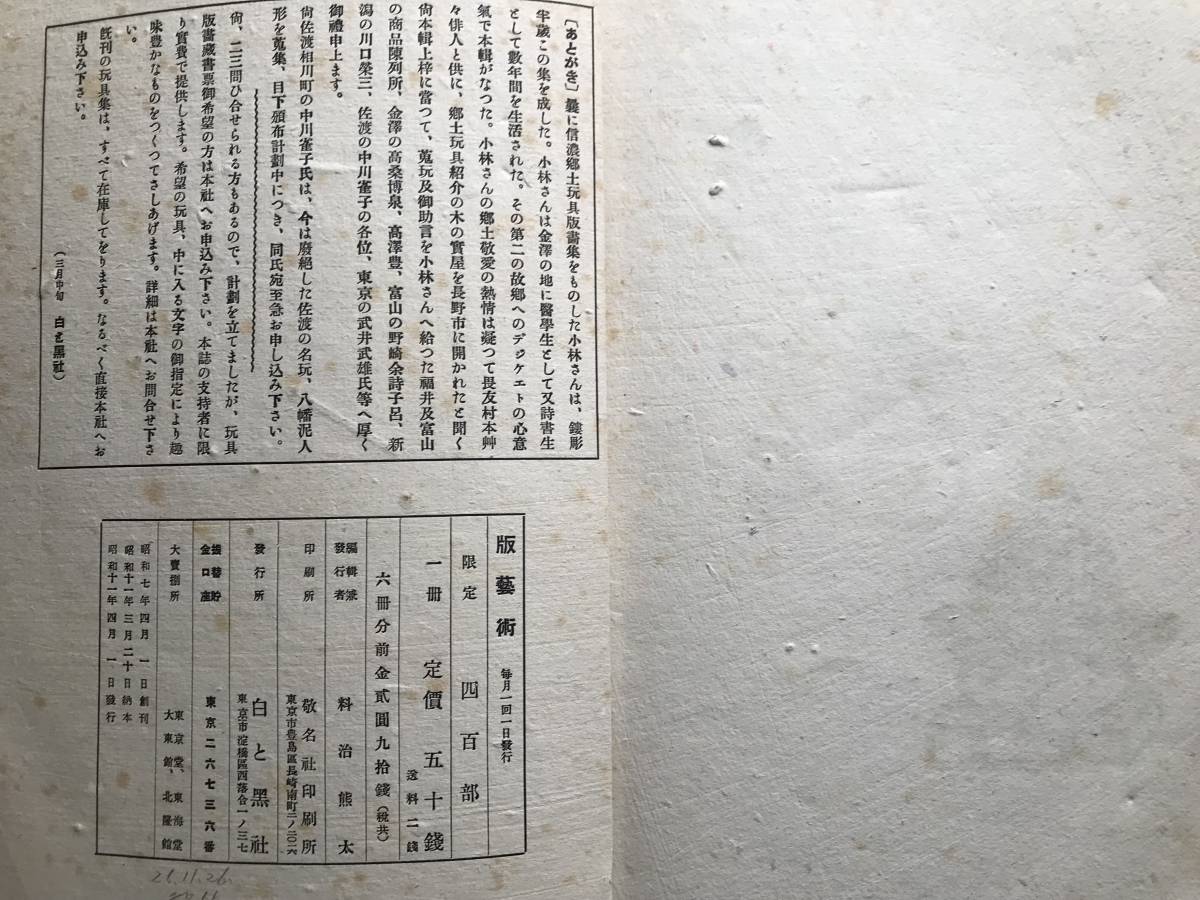 〔あとがき〕曩に信濃郷土玩具版畵集をものした小林さんは、鏤彫
半歳この集を成した。小林さんは金澤の地に醫學生として又詩書生
として數年間を生活された。その第二の故郷へのデヂケエトの心意
氣で本輯がなつた。小林さんの郷土敬愛の熱情は凝つて畏友村本艸
々俳人と供に、郷土玩具紹介の木の實屋を長野市に開かれたと聞く
尙本輯上梓に當つて、蒐玩及御助言を小林さんへ給つた福井及富山
の商品陳列所、金澤の高桑博泉、高澤豊、富山の野崎余詩子呂、新
潟の川口榮三、佐渡の中川雀子の各位、東京の武井武雄氏等へ厚く
御禮申上ます。
尙佐渡相川町の中川雀子氏は、今は廢絶した佐渡の名玩、八幡泥人
形を蒐集、目下頒布計劃中につき、同氏宛至急お申し込み下さい。
尙、二三問ひ合せられる方もあるので、計劃を立てましたが、玩具
版畵藏書票御希望の方は本社へお申込み下さい。本誌の支持者に限
り實費で提供します。希望の玩具、中に入る文字の御指定により趣
味豊かなものをつくつてさしあげます。詳細は本社へお問合せ下さ
い。
既刊の玩具集は、すべて在庫してをります。なるべく直接本社へお
申込み下さい。
（三月中旬　白と黑社）
版藝術　每月一回一日發行
限定　四百部
一冊　定價　五十錢　送料二錢
六冊分前金貳圓九拾錢（稅共）
編輯兼發行者　料治熊太
印刷所　敬名社印刷所
東京市豊島區長崎南町二ノ二〇二六
發行所　白と黑社
東京市淀橋區西落合一ノ三七
振替貯金口座　東京二六七三六番
大賣捌所　東京堂、東海堂
大東館、北隆館
昭和七年四月一日創刊
昭和十一年三月二十日納本
昭和十一年四月一日發行
26.11.26.